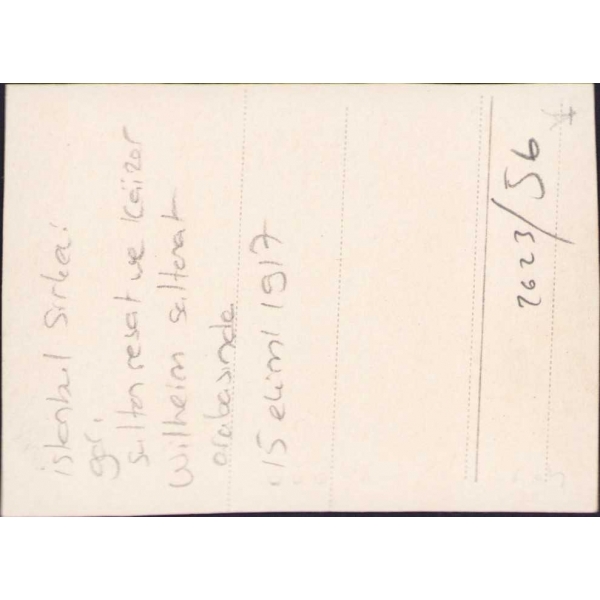 istanbul Sirkeci
garı
sultan resat ve Kaizer
Wilheim saltanat
arabasında
15 ekim 1917
2623/56